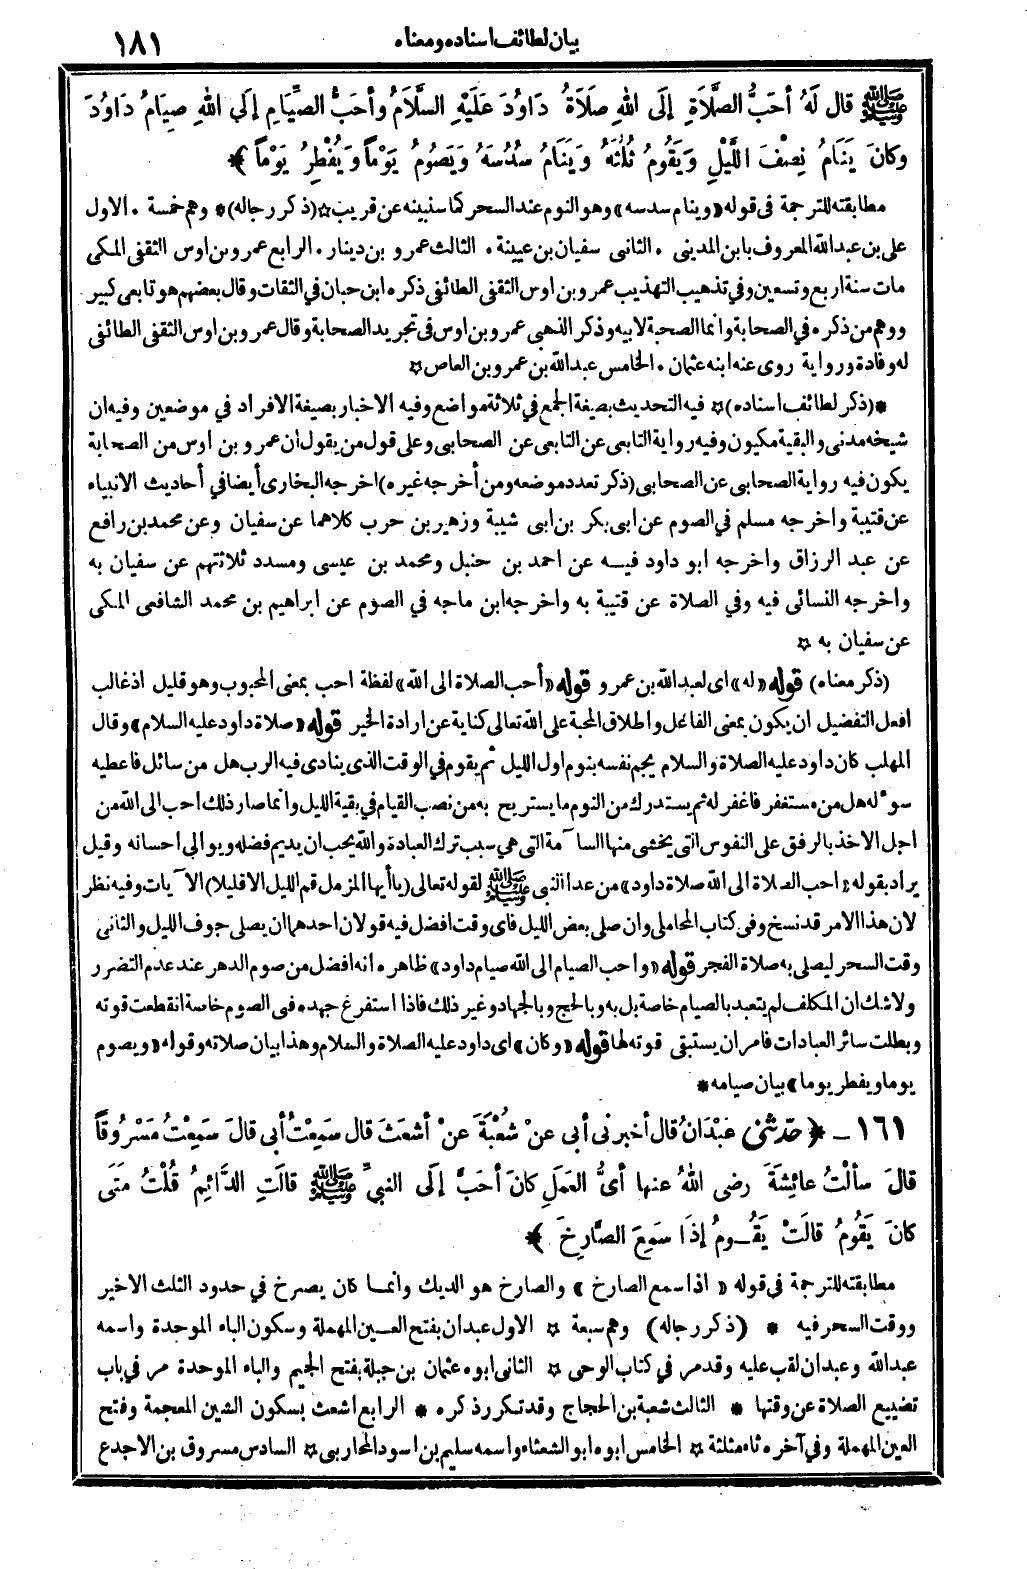 بيان لطائف اسناده ومعناه ١٨١
ﷺ قال لَهُ أحَبُّ الصَّلَاةِ إلَى اللهِ صلَاَةُ دَاوُدَ عَلَيْهِ السَّلَامُ وأحَبُّ الصِّيَامِ إلَي اللهِ صِيَامُ دَاوُدَ
وكانَ يَنَامُ نِصْفَ اللَّيْلِ وَيَقُومُ ثُلُثَهُ وَيَنَامُ سُدُسَهُ وَيَصُومُ يَوْماً وَيُفْطِرُ يَوْماً ﴾*
مطابقته للترجمة فى قوله «وينام سدسه» وهو النوم عند السحر كما سنبينه عن قريب ☆ (ذكر رجاله) * وهم خمسة . الاول
على بن عبدالله المعروف بابن المدينى . الثانى سفيان بن عيينة . الثالث عمرو بن دينار . الرابع عمرو بن اوس الثقفى المكى
مات سنة اربع وتسعين وفي تذهيب التهذيب عمرو بن اوس الثقفى الطائفى ذكره ابن حبان في الثقات وقال بعضهم هو تابعى كبير
ووهم من ذكره في الصحابة وانما الصحبة لابيه وذكر الذهبى عمرو بن اوس فى تجريد الصحابة وقال عمرو بن اوس الثقفى الطائفى
له وفادة ورواية روى عنه ابنه عثمان . الخامس عبدالله بن عمرو بن العاص ☆
*(ذكر لطائف اسناده) ☆ فيه التحديث بصيغة الجمع في ثلاثة مواضع وفيه الاخبار بصيغة الافراد في موضعين وفيه ان
شيخه مدنى والبقية مكيون وفيه رواية التابعى عن التابعى عن الصحابى وعلى قول من يقول ان عمرو بن اوس من الصحابة
يكون فيه رواية الصحابى عن الصحابى (ذكر تعدد موضعه ومن أخرجه غيره) اخرجه البخارى أيضا في أحاديث الانبياء
عن قتيبة واخرجه مسلم في الصوم عن ابى بكر بن ابى شيبة وزهير بن حرب كلاهما عن سفيان وعن محمد بن رافع
عن عبد الرزاق واخرجه ابو داود فيه عن احمد بن حنبل ومحمد بن عيسى ومسدد ثلاثتهم عن سفيان به
واخرجه النسائى فيه وفي الصلاة عن قتيبة به واخرجه ابن ماجه في الصوم عن ابراهيم بن محمد الشافعى المكى
عن سفيان به ☆
(ذكر معناه) قوله «له» اى لعبدالله بن عمرو قوله «أحب الصلاة الى الله» لفظة احب بمعنى المحبوب وهو قليل اذ غالب
افعل التفضيل ان يكون بمعنى الفاعل واطلاق المحبة على الله تعالى كناية عن ارادة الخير قوله «صلاة داود عليه السلام» وقال
المهلب كان داود عليه الصلاة والسلام يجم نفسه بنوم اول الليل ثم يقوم في الوقت الذى ينادى فيه الرب هل من سائل فاعطيه
سوءله هل من مستغفر فاغفر له ثم يستدرك من النوم ما يستريح به من نصب القيام في بقية الليل وانما صار ذلك احب الى الله من
اجل الاخذ بالرفق على النفوس التى يخشى منها السآمة التى هي سبب ترك العبادة والله يحب ان يديم فضله ويوالى احسانه وقيل
يراد بقوله «احب الصلاة الى الله صلاة داود» من عدا النبى ﷺ لقوله تعالى (يا أيها المزمل قم الليل الا قليلا) الآيات وفيه نظر
لان هذا الامر قد نسخ وفى كتاب المحاملى وان صلى بعض الليل فاى وقت افضل فيه قولان احدهما ان يصلى جوف الليل والثانى
وقت السحر ليصلى به صلاة الفجر قوله «واحب الصيام الى الله صيام داود» ظاهره انه افضل من صوم الدهر عند عدم التضرر
ولا شك ان المكلف لم يتعبد بالصيام خاصة بل به وبالحج وبالجهاد وغير ذلك فاذا استفرغ جهده فى الصوم خاصة انقطعت قوته
وبطلت سائر العبادات فامر ان يستبقى قوته لها قوله «وكان» اى داود عليه الصلاة والسلام وهذا بيان صلاته وقوله «ويصوم
يوما ويفطر يوما» بيان صيامه *
١٦١ ـ *﴿ حدّثني عَبْدَانُ قال أخبرنى أبى عنْ شُعْبَةَ عنْ أشعَثَ قال سَمِعْتُ أبى قالَ سَمِعْتُ مَسْرُوقاً
قالَ سألْتُ عائِشَةَ رضى اللهُ عنها أىُّ العَمَلِ كانَ أحَبَّ إلَى النبيِّ ﷺ قالَتِ الدَّائِمُ قُلْتُ مَتَى
كانَ يَقُومُ قالَتْ يَقُومُ إذَا سَمِعَ الصَّارِخَ ﴾*
مطابقته للترجمة فى قوله « اذا سمع الصارخ » والصارخ هو الديك وانما كان يصرخ في حدود الثلث الاخير
ووقت السحر فيه * (ذكر رجاله) وهم سبعة ☆ الاول عبدان بفتح العين المهملة وسكون الباء الموحدة واسمه
عبدالله وعبدان لقب عليه وقد مر في كتاب الوحى ☆ الثانى ابوه عثمان بن جبلة بفتح الجيم والباء الموحدة مر في باب
تضييع الصلاة عن وقتها * الثالث شعبة بن الحجاج وقد تكرر ذكره * الرابع اشعث بسكون الشين المعجمة وفتح
العين المهملة وفي آخره ثاء مثلثة ☆ الخامس ابوه ابو الشعثاء واسمه سليم بن اسود المحاربى ☆ السادس مسروق بن الاجدع